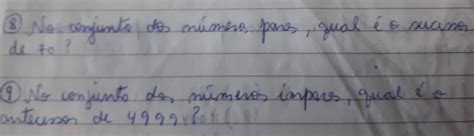 ⑧ No conjunto dos números pares, qual é o sucessor
de 70?
⑨ No conjunto dos números ímpares, qual é o
antecessor de 4999?